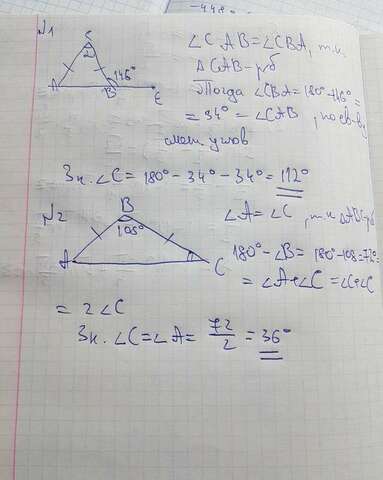 -448
№1
C
2
146°
A
B
E
∠CAB = ∠CBA, т.к.
△CAB - рб
Тогда ∠CBA = 180° - 146° =
= 34° = ∠CAB, по св-ву
смеж углов
Зн. ∠C = 180° - 34° - 34° = 112°
№2
B
108°
A
C
∠A = ∠C, т.к △ABC рб
180° - ∠B = 180° - 108 = 72° =
= ∠A + ∠C = ∠C + ∠C
= 2∠C
Зн. ∠C = ∠A = 72/2 = 36°